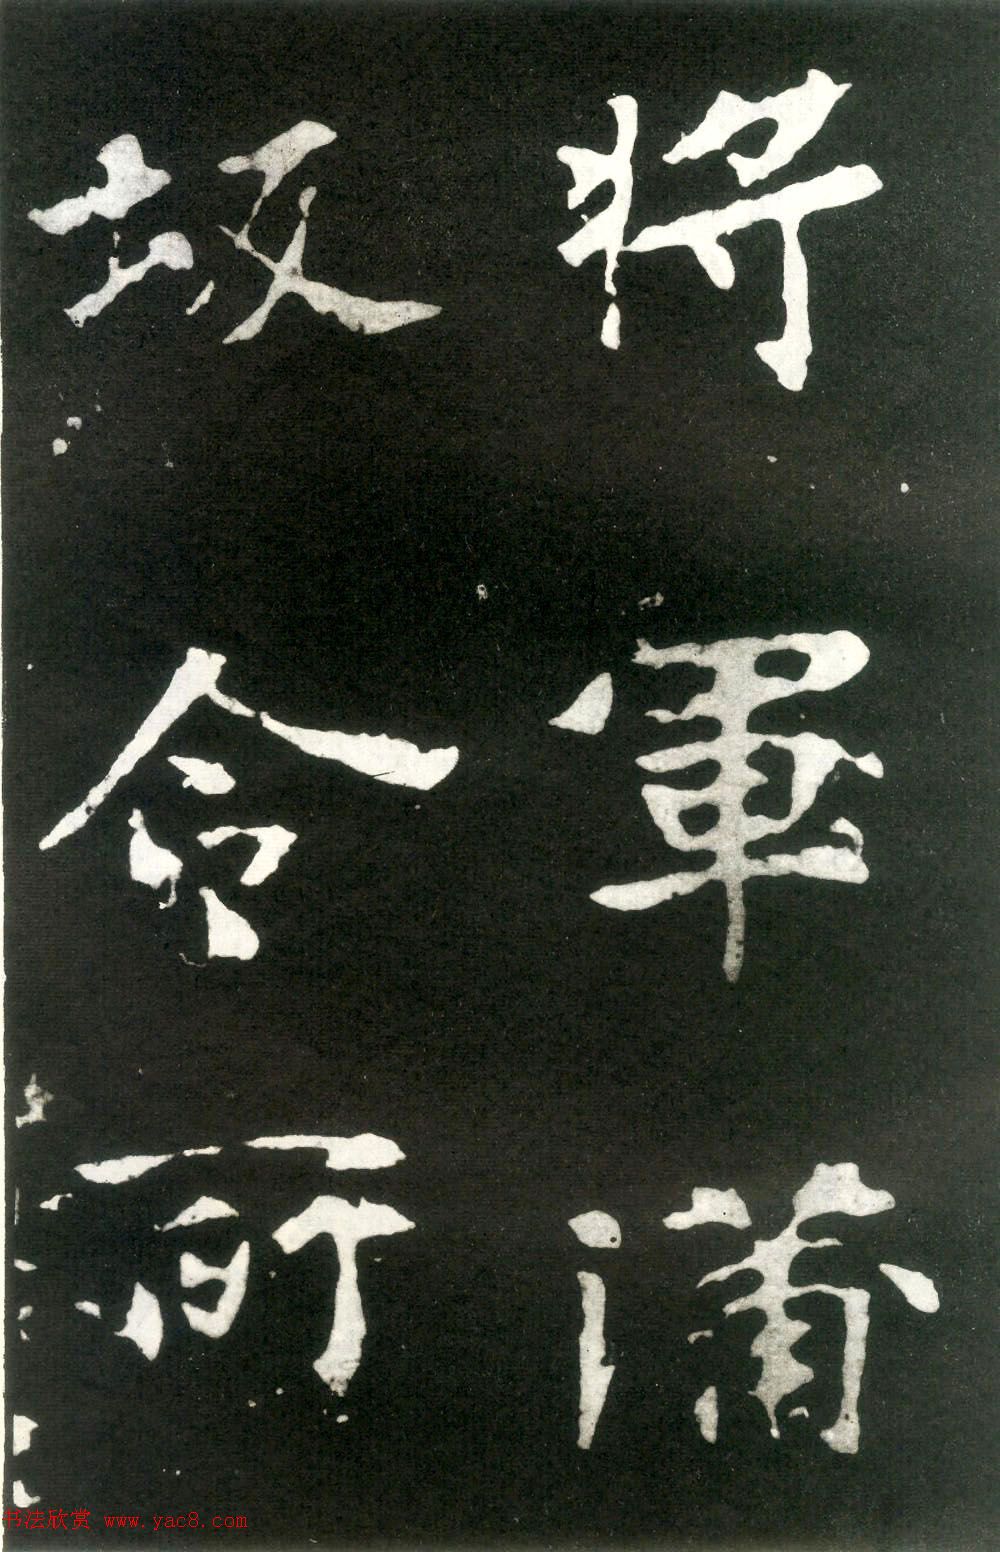 将軍蒲
坂令所
书法欣赏 www.yac8.com